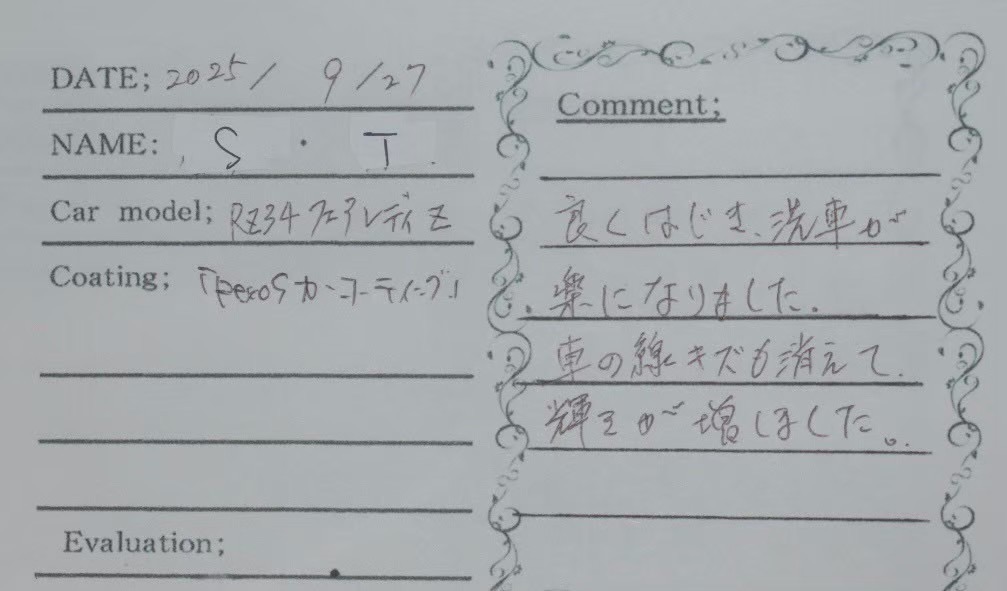 DATE; 2025/ 9/27
NAME: S・T
Car model; RZ34 フェアレディ Z
Coating; カーコーティング」
Evaluation;
Comment;
良くはじき、洗車が
楽になりました。
車の線キズも消えて、
輝きが増しました。